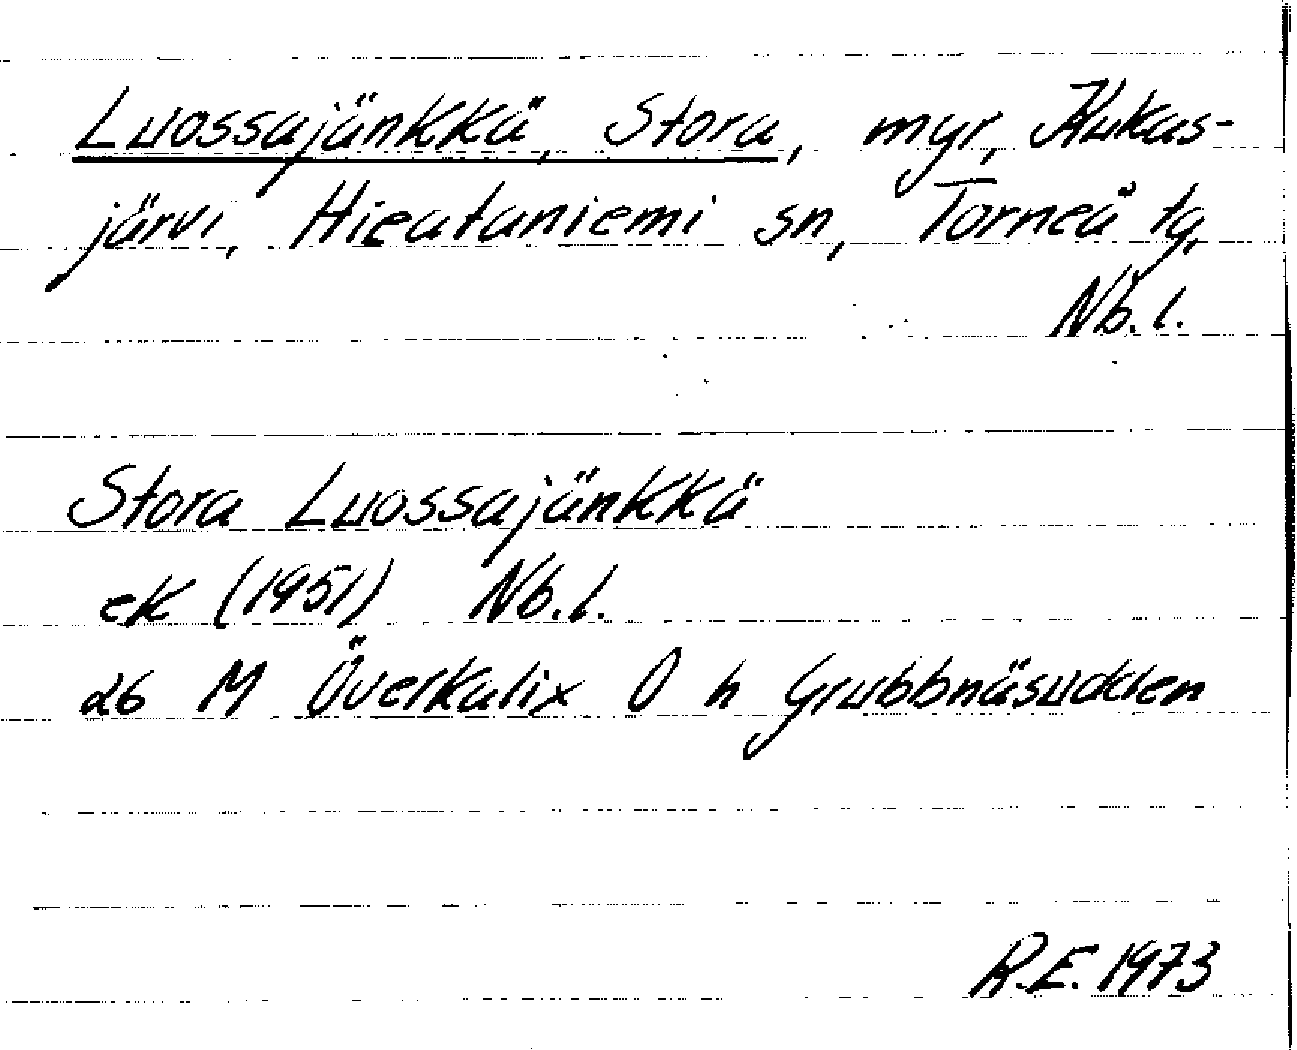 Luossajänkkä, Stora, myr, Kukas-
järvi, Hietaniemi sn, Torneå tg,
Nb. l.
Stora Luossajänkkä
ek (1951) Nb. l.
26 M Överkalix O h Grubbnäsudden
R.E. 1973